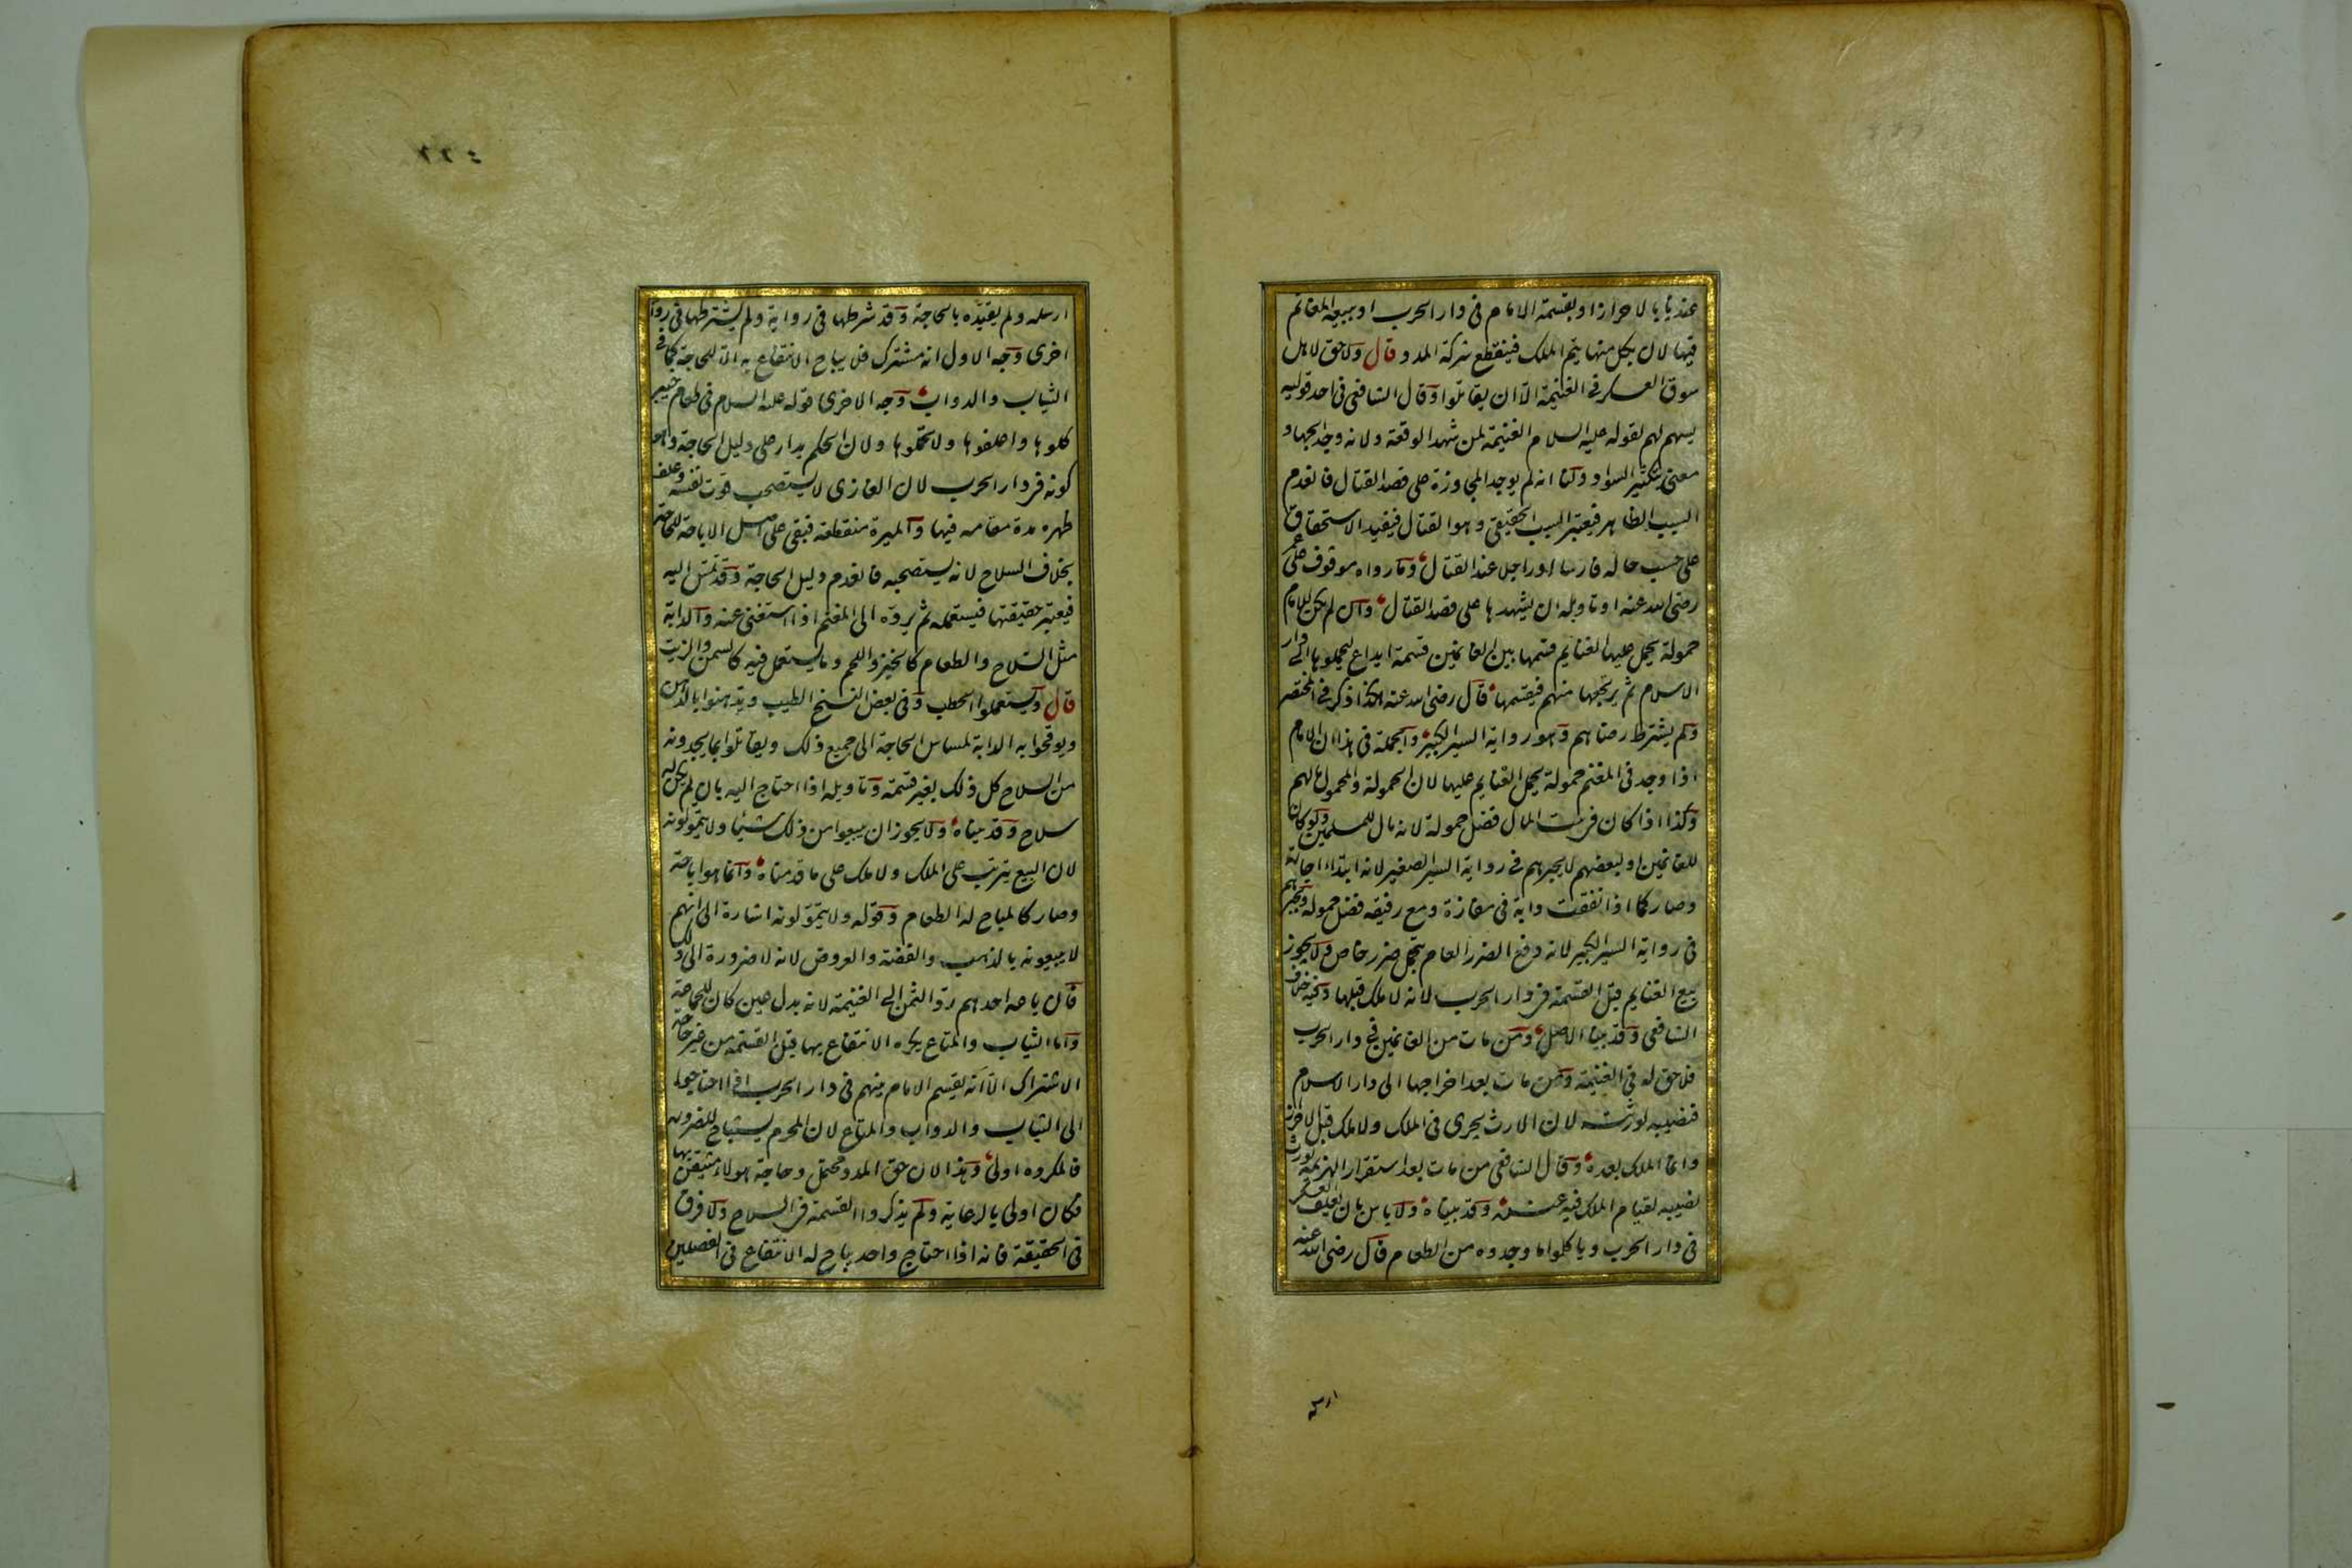 عندنا بالاحراز او بقسمة الامام في دار الحرب او ببيعه المغانم
فيها لان بكل منها يتم الملك فينقطع شركة المدد قال ولا حق لاهل
سوق العسكر في الغنيمة الا ان يقاتلوا وقال الشافعي في احد قوليه
يسهم لهم لقوله عليه السلام الغنيمة لمن شهد الوقعة ولانه وجد الجهاد
معنى بتكثير السواد ولنا انه لم يوجد المجاوزة على قصد القتال فانعدم
السبب الظاهر فيعتبر السبب الحقيقي وهو القتال فيفيد الاستحقاق
على حسب حاله فارسا او راجلا عند القتال وما رواه موقوف على عمر
رضى الله عنه او تاويله ان يشهدها على قصد القتال وان لم يكن للامام
حمولة يحمل عليها الغنايم قسمها بين الغانمين قسمة ايداع ليحملوها الى دار
الاسلام ثم يرتجعها منهم فيقسمها قال رضى الله عنه هكذا ذكر في المختصر
ولم يشترط رضاهم وهو رواية السير الكبير والجملة في هذا ان الامام
اذا وجد في المغنم حمولة يحمل الغنايم عليها لان الحمولة والمحمول مالهم
وكذا اذا كان في بيت المال فضل حمولة لانه مال للمسلمين ولو كان
للغانمين او لبعضهم لا يجبرهم في رواية السير الصغير لانه ابتداء اجارة
وصار كما اذا نفقت دابة في مفازة ومع رفيقه فضل حمولة ويجبرهم
في رواية السير الكبير لانه دفع الضرر العام بتحمل ضرر خاص ولا يجوز
بيع الغنايم قبل القسمة في دار الحرب لانه لا ملك قبلها وفيه خلاف
الشافعي وقد بينا الاصل ومن مات من الغانمين في دار الحرب
فلا حق له في الغنيمة ومن مات بعد اخراجها الى دار الاسلام
فنصيبه لورثته لان الارث يجرى في الملك ولا ملك قبل الاحراز
وانما الملك بعده وقال الشافعي من مات بعد استقرار الهزيمة يورث
نصيبه لقيام الملك فيه عنده وقد بيناه ولا باس بان يعلف العسكر
في دار الحرب وياكلوا ما وجدوه من الطعام قال رضى الله عنه
ارسله
ارسله ولم يقيده بالحاجة وقد شرطها في رواية ولم يشترطها في رواية
اخرى وجه الاول انه مشترك فلا يباح الانتفاع به الا للحاجة كما في
الثياب والدواب وجه الاخرى قوله عليه السلام في طعام خيبر
كلوها واعلفوها ولا تحملوها ولان الحكم يدار على دليل الحاجة وهو
كونه في دار الحرب لان الغازى لا يستصحب قوت نفسه وعلف
ظهره مدة مقامه فيها والميرة منقطعة فبقى على اصل الاباحة للحاجة
بخلاف السلاح لانه يستصحبه فانعدم دليل الحاجة وقد تمس اليه
فيعتبر حقيقتها فيستعمله ثم يرده الى المغنم اذا استغنى عنه والدابة
مثل السلاح والطعام كالخبز واللحم وما يستعمل فيه كالسمن والزيت
قال ويستعملوا الحطب وفي بعض النسخ الطيب ويدهنوا بالدهن
ويوقحوا به الدابة لمساس الحاجة الى جميع ذلك ويقاتلوا بما يجدونه
من السلاح كل ذلك بغير قسمة وتاويله اذا احتاج اليه بان لم يكن له
سلاح وقد بيناه ولا يجوز ان يبيعوا من ذلك شيئا ولا يتمولونه
لان البيع يترتب على الملك ولا ملك على ما قدمناه وانما هو اباحة
وصار كالمباح له الطعام وقوله ولا يتمولونه اشارة الى انهم
لا يبيعونه بالذهب والفضة والعروض لانه لا ضرورة الى ذلك
فان باعه احدهم رد الثمن الى الغنيمة لانه بدل عين كان للجماعة
واما الثياب والمتاع يكره الانتفاع بها قبل القسمة من غير حاجة
الاشتراك الا انه يقسم الامام بينهم في دار الحرب اذا احتاجوا
الى الثياب والدواب والمتاع لان المحرم يستباح للضرورة
فالمكروه اولى وهذا لان حق المدد محتمل وحاجة هولاء متيقن بها
فكان اولى بالرعاية ولم يذكروا القسمة في السلاح ولا فرق
في الحقيقة فانه اذا احتاج واحد يباح له الانتفاع في الفصلين